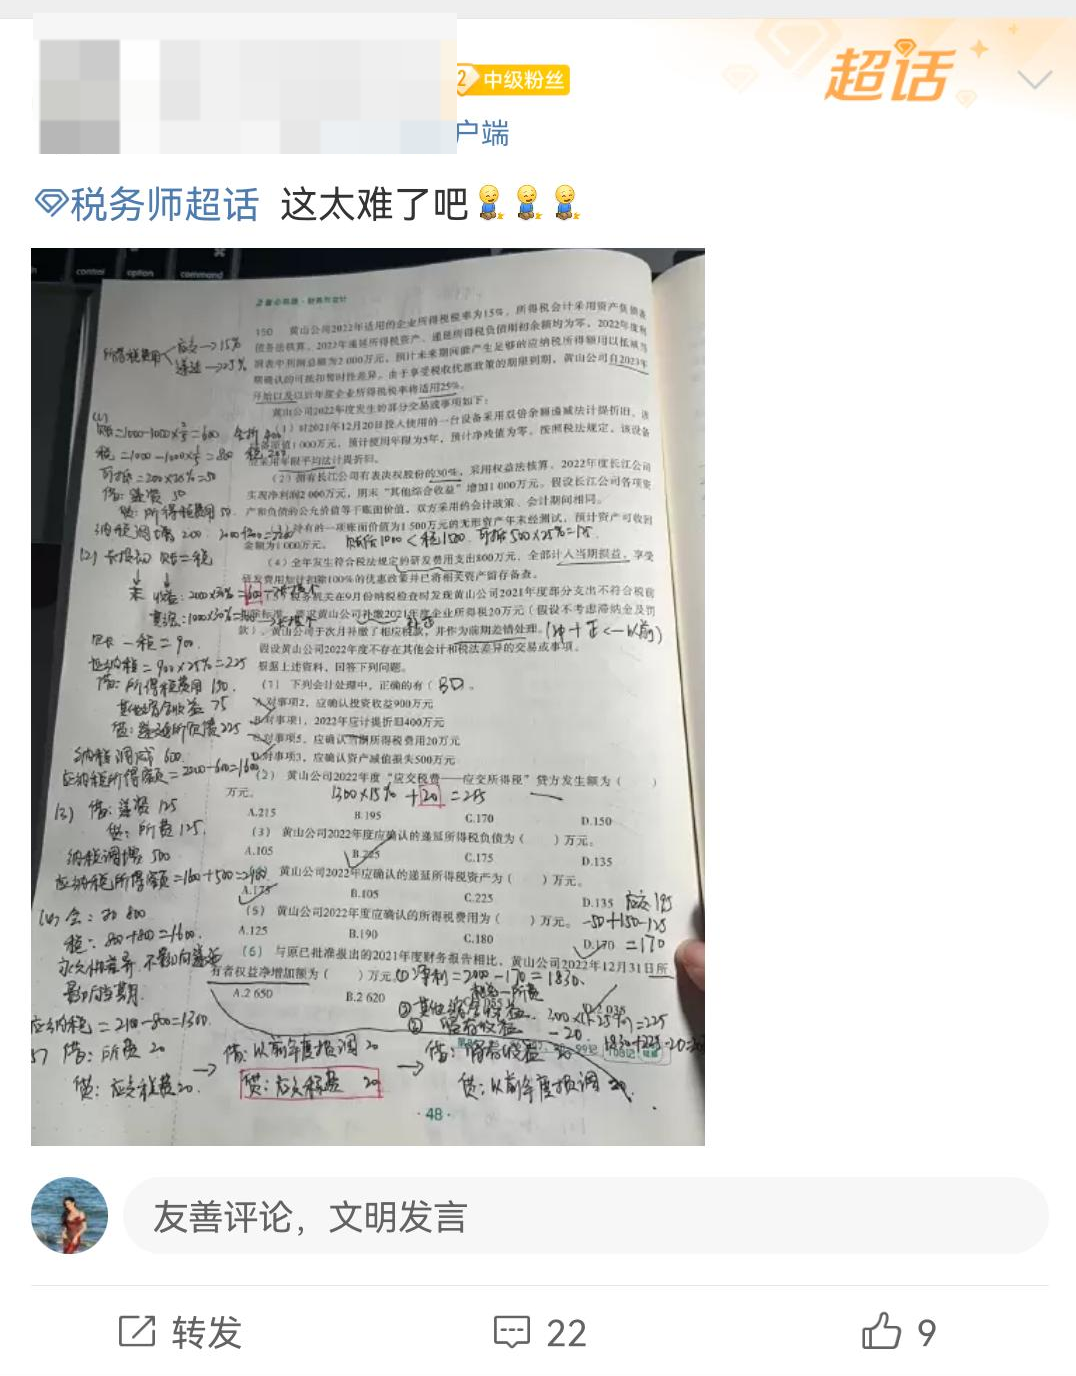 中级粉丝
超话
户端
税务师超话 这太难了吧
control option command
150 黄山公司2022年适用的企业所得税税率为15%，所得税会计采用资产负债表
债务法核算。2022年递延所得税资产、递延所得税负债期初余额均为零。2022年度利
润表中利润总额为2 000万元，预计未来期间能产生足够的应纳税所得额用以抵减当
期确认的可抵扣暂时性差异。由于享受税收优惠政策的期限到期，黄山公司自2023年
开始以及以后年度企业所得税税率将适用25%。
黄山公司2022年度发生的部分交易或事项如下：
（1）对2021年12月20日投入使用的一台设备采用双倍余额递减法计提折旧，该
1 000万元，预计使用年限为5年，预计净残值为零。按照税法规定，该设备
应采用年限平均法计提折旧。
（2）拥有长江公司有表决权股份的30%，采用权益法核算。2022年度长江公司
实现净利润2 000万元，期末“其他综合收益”增加1 000万元。假设长江公司各项资
产和负债的公允价值等于账面价值，双方采用的会计政策、会计期间相同。
持有的一项账面价值为1 500万元的无形资产年末经测试，预计资产可收回
金额为1 000万元。
（4）全年发生符合税法规定的研发费用支出800万元，全部计入当期损益，享受
研发费用加计扣除100%的优惠政策并已将相关资产留存备查。
（5）税务机关在9月份纳税检查时发现黄山公司2021年度部分支出不符合税前
要求黄山公司补缴2021年度企业所得税20万元（假设不考虑滞纳金及罚
款），黄山公司于次月补缴了相应税款，并作为前期差错处理。
假设黄山公司2022年度不存在其他会计和税法差异的交易或事项。
根据上述资料，回答下列问题。
（1） 下列会计处理中，正确的有（ BD 。
A.对事项2，应确认投资收益900万元
B.对事项1，2022年应计提折旧400万元
C.对事项5，应确认当期所得税费用20万元
D.对事项3，应确认资产减值损失500万元
（2） 黄山公司2022年度“应交税费——应交所得税”贷方发生额为（ ）
万元。 1300×15% +20
A.215 B.195 C.170 D.150
（3） 黄山公司2022年度应确认的递延所得税负债为（ ）万元。
A.105 B.225 C.175 D.135
黄山公司2022年应确认的递延所得税资产为（ ）万元。
A.175 B.105 C.225 D.135
（5） 黄山公司2022年度应确认的所得税费用为（ ）万元。
A.125 B.190 C.180 D.170 =170
（6） 与原已批准报出的2021年度财务报告相比，黄山公司2022年12月31日所
有者权益净增加额为（ ）万元。 ①净利=2000-170=1830.
A.2 650 B.2 620
所得税费用 应交→15%
递延→25%
税=1000-1000×1/5=800
可抵=200×25%=50
借: 递资 50
贷: 所得税费用 50.
纳税调增 200.
应纳税=900×25%=225
借: 所得税费用 150.
其他综合收益 75
贷: 递延所得税负债 225
纳税调减 600.
(3) 借: 递资 125
贷: 所费 125.
纳税调增 500
(4) 会: 800
税: 800+800=1600.
永久性差异, 不影响递延
影响当期.
应纳税=2100-800=1300.
借: 所费 20
贷: 应交税费 20.
借: 以前年度损调 20
贷: 应交税费 20
贷: 以前年度损调 20.
· 48 ·
友善评论，文明发言
转发 22 9